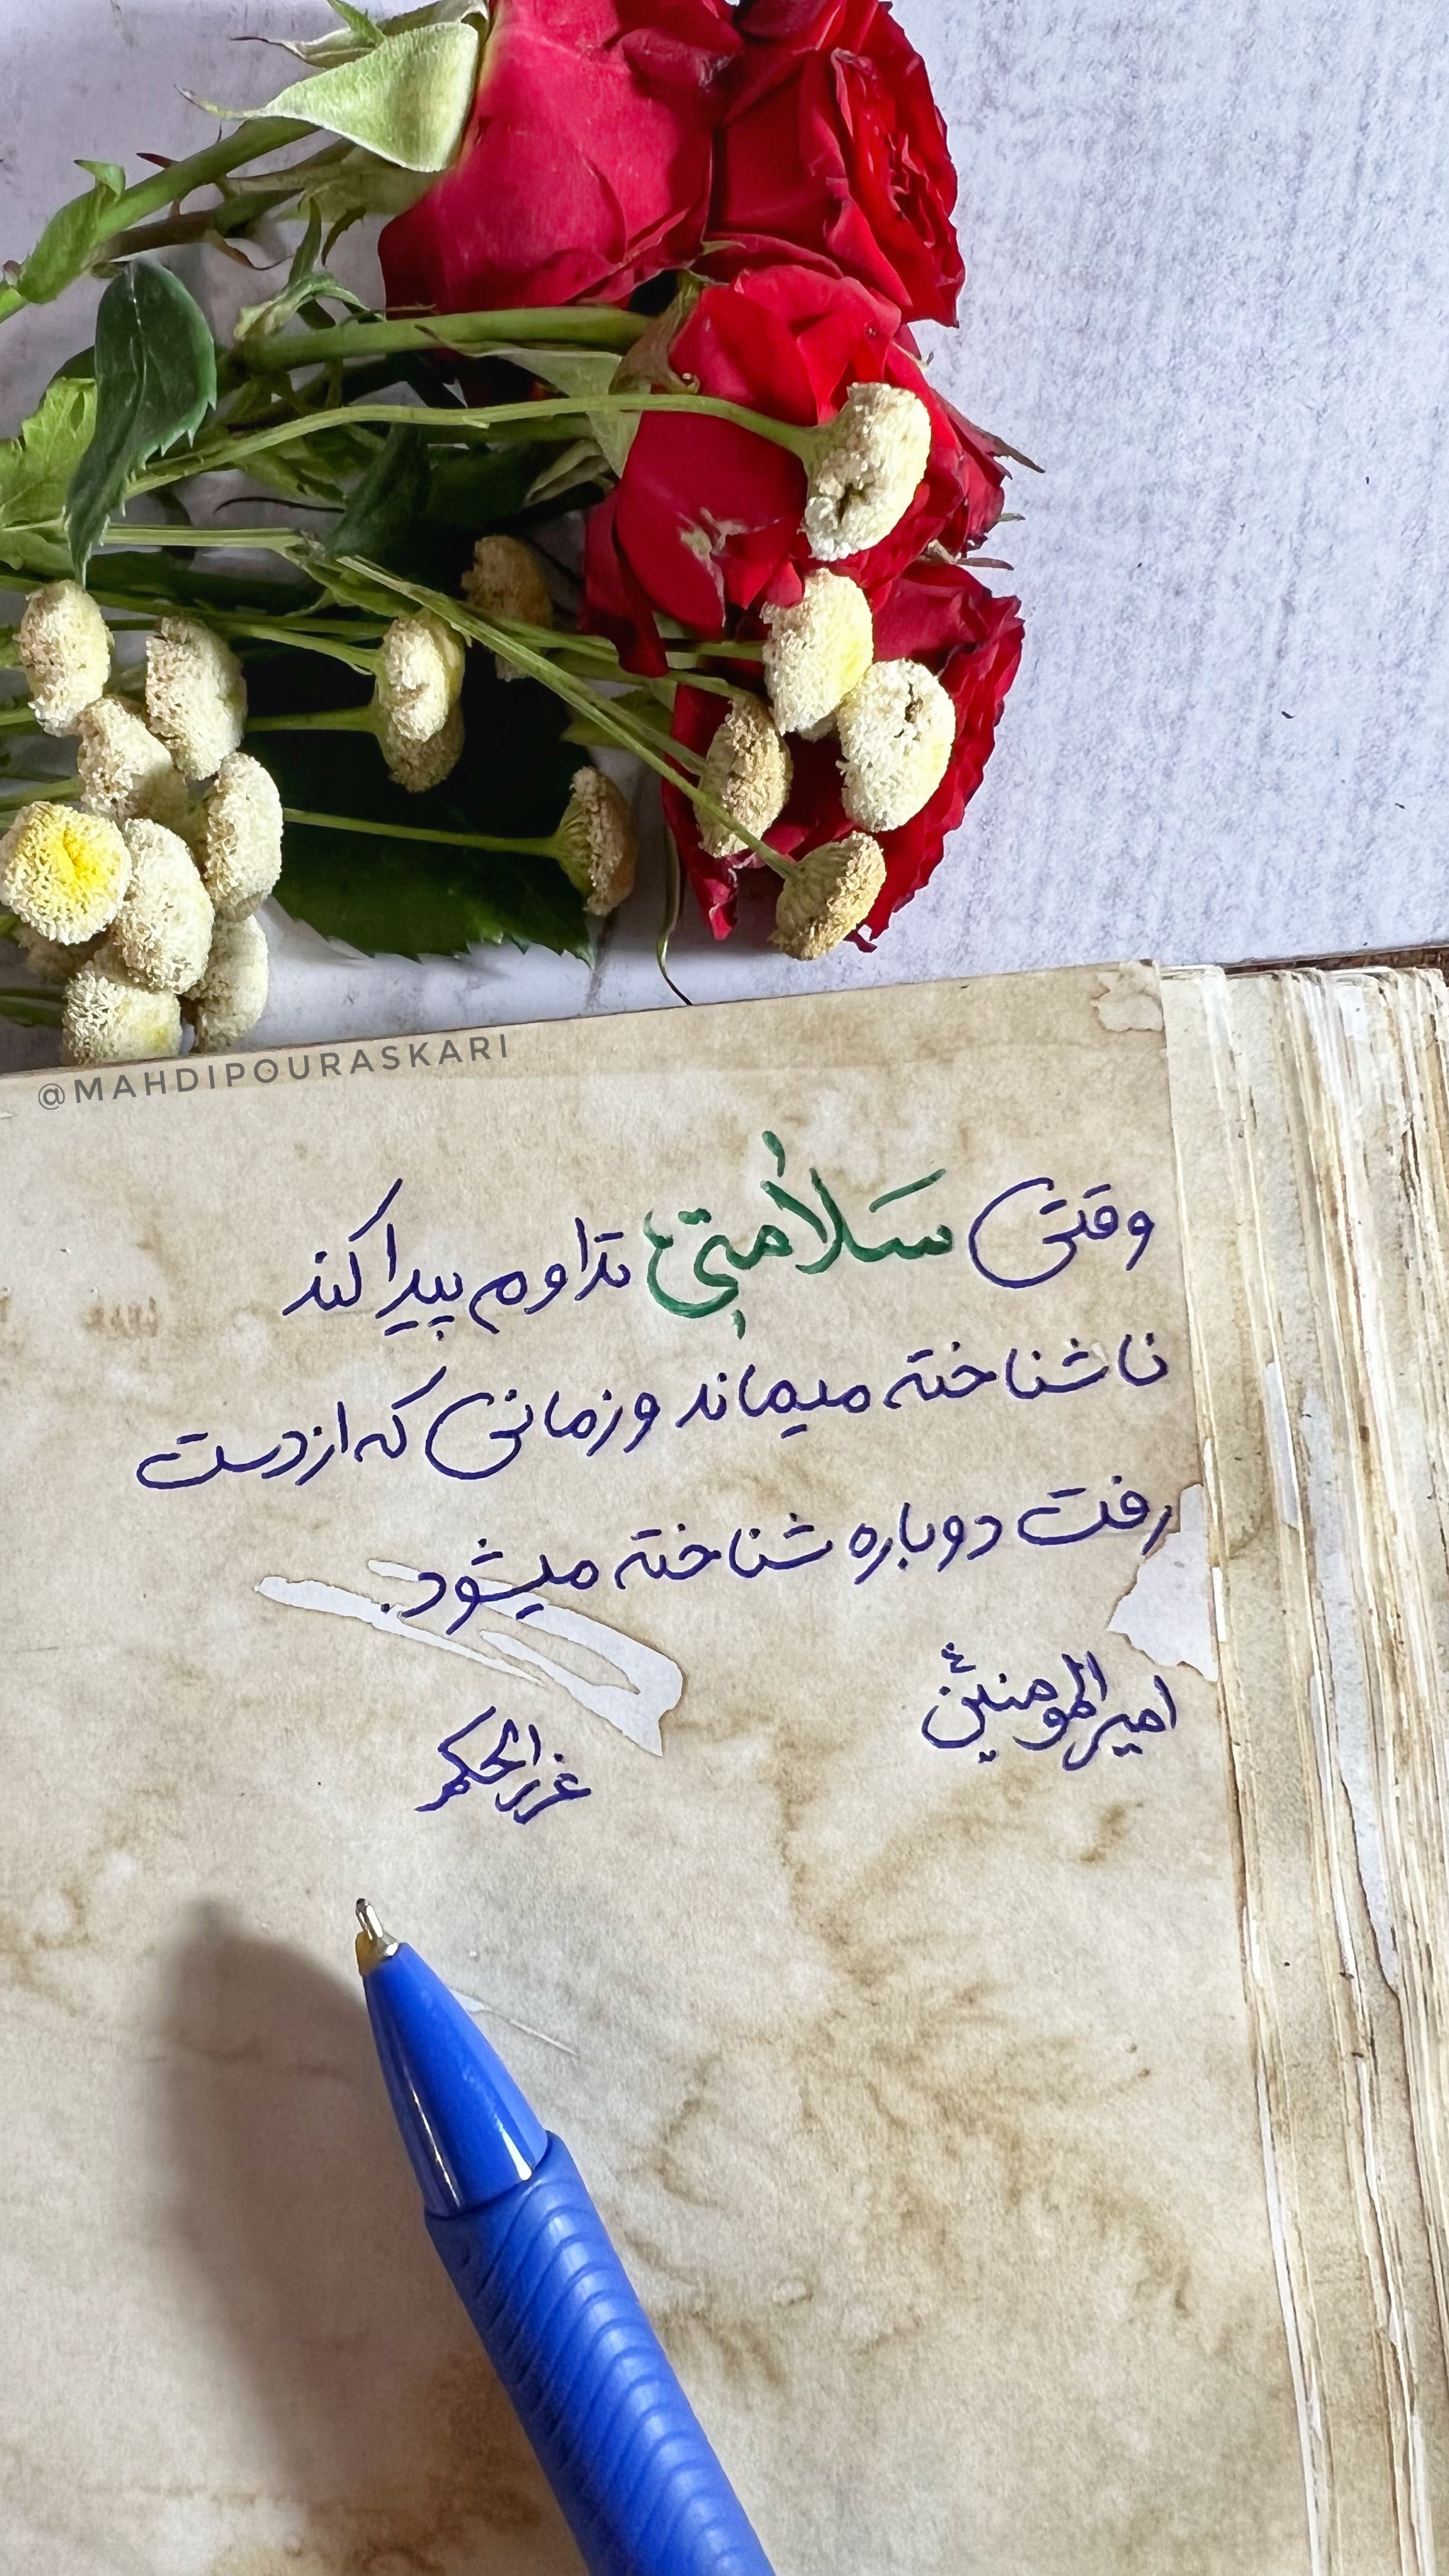 @MAHDIPOURASKARI
وقتی سَلامتی تداوم پیدا کند
ناشناخته میماند و زمانی که از دست
رفت دوباره شناخته میشود.
امیرالمومنین ع
غررالحکم